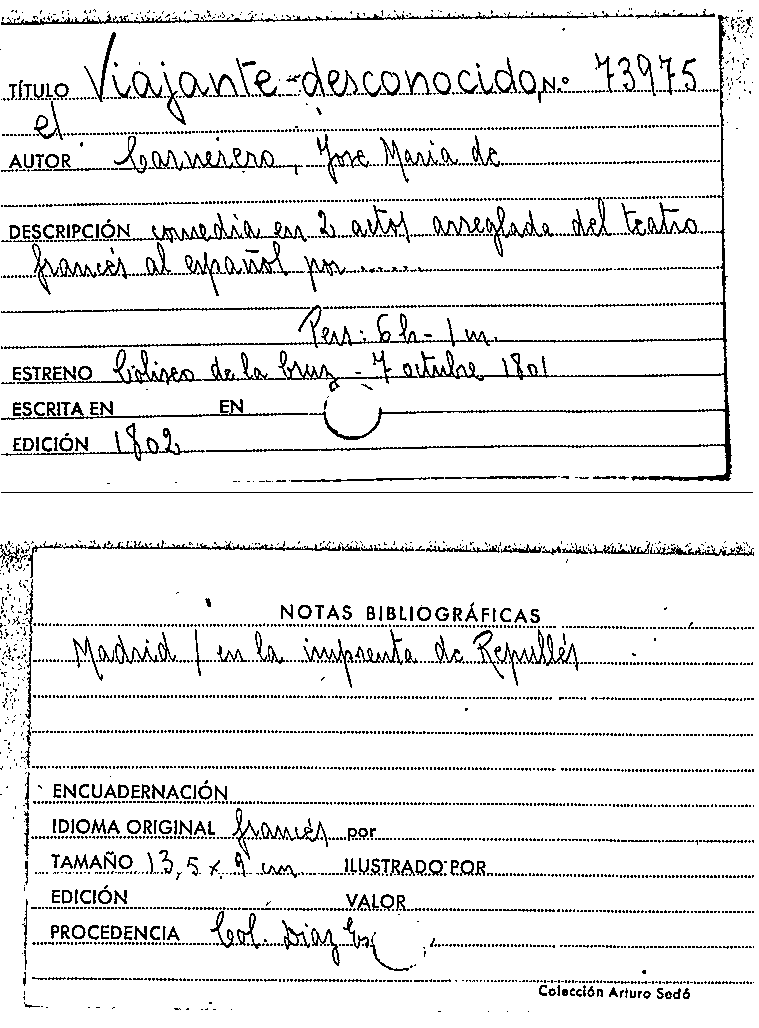 TÍTULO Viajante-desconocido, N.º 73975
el
AUTOR Carnerero, Jose Maria de
DESCRIPCIÓN comedia en 2 actos arreglada del teatro
francés al español por ......
Pers: 6 h - 1 m.
ESTRENO Coliseo de la Cruz - 7 octubre 1801
ESCRITA EN EN
EDICIÓN 1802
NOTAS BIBLIOGRÁFICAS
Madrid / en la imprenta de Repullés
ENCUADERNACIÓN
IDIOMA ORIGINAL francés por
TAMAÑO 13,5 x 9 cm ILUSTRADO POR
EDICIÓN VALOR
PROCEDENCIA Col. Diaz Es
Colección Arturo Sedó